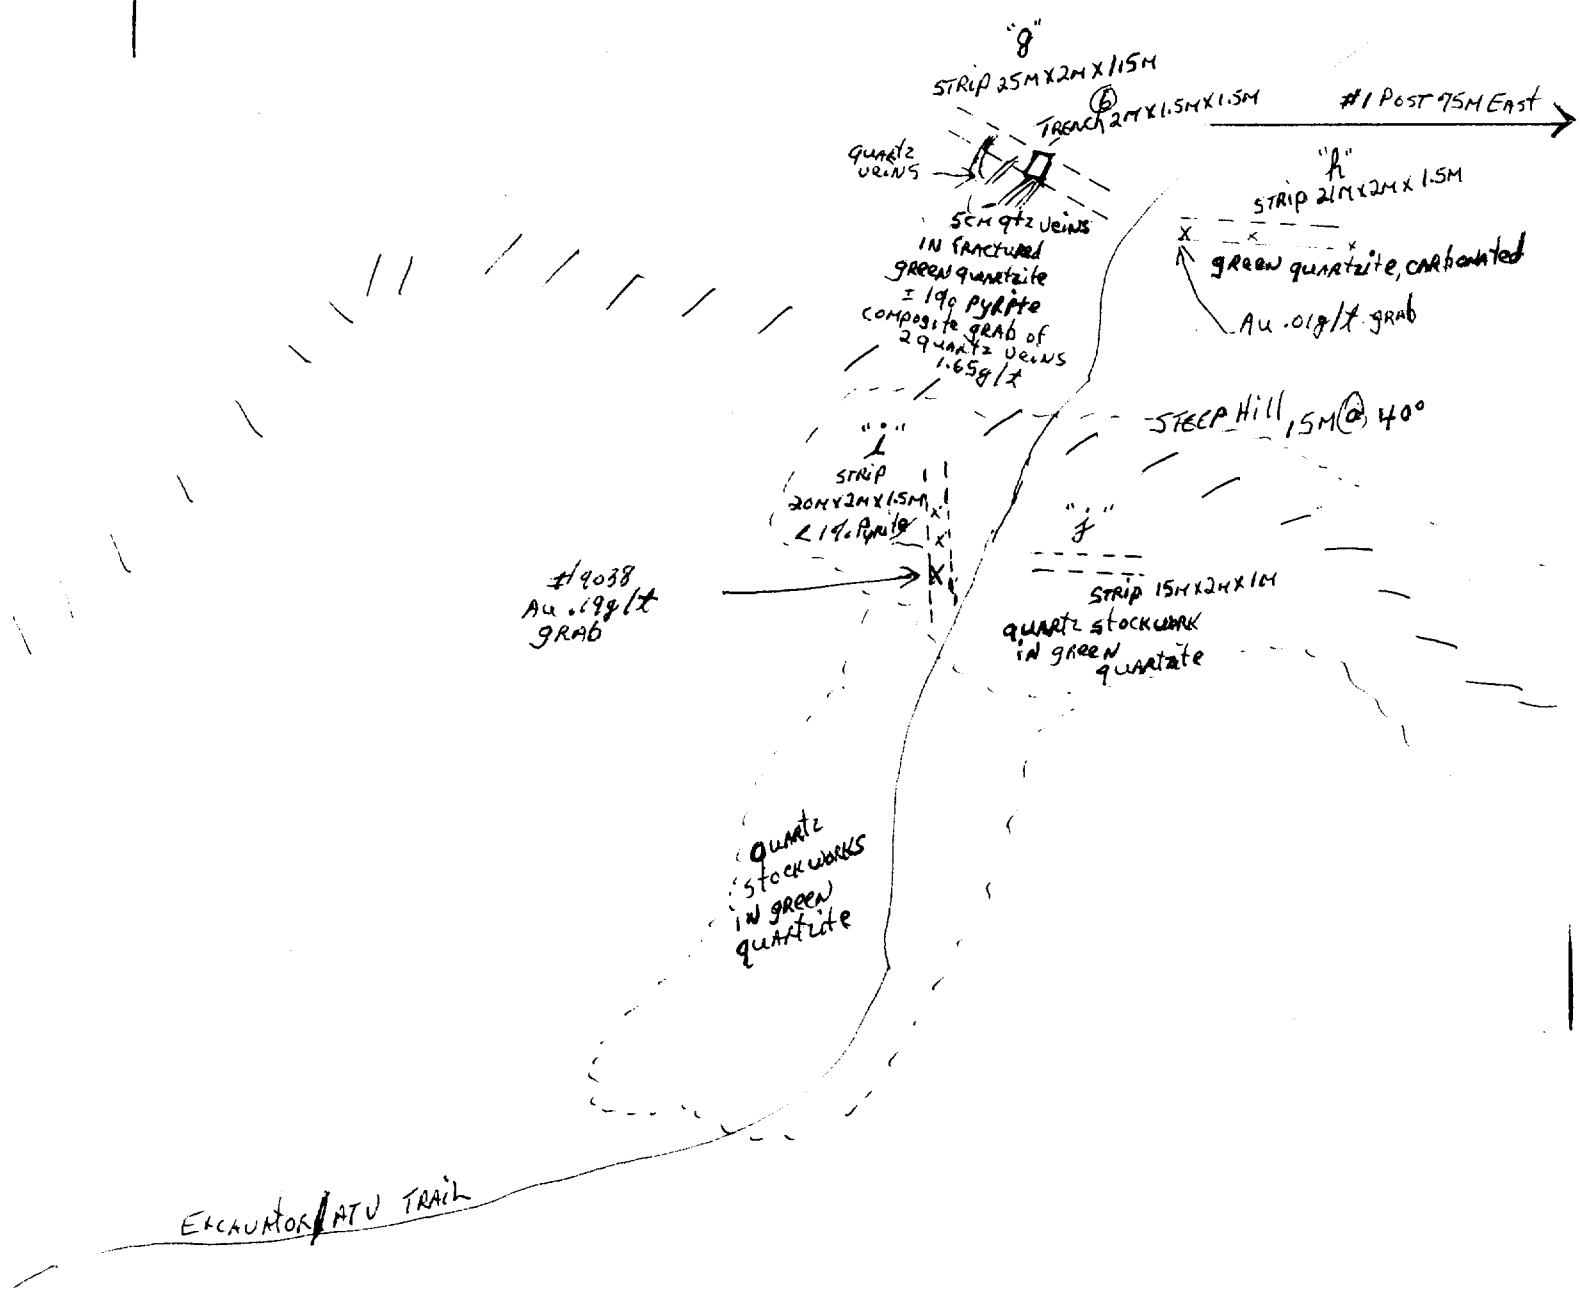 "g"
STRIP 25M X 2M X 1.5M
6
TRENCH 2M X 1.5M X 1.5M
#1 POST 75M EAST
QUARTZ
VEINS
"h"
STRIP 21M X 2M X 1.5M
5CM qtz VEINS
IN FRACTURED
GREEN QUARTZITE
± 1% PYRITE
COMPOSITE GRAB OF
2 QUARTZ VEINS
1.65g/t
X
X
X
GREEN QUARTZITE, CARBONATED
Au .01g/t GRAB
STEEP Hill 15M @ 40°
"i"
STRIP
20M X 2M X 1.5M
< 1% PYRITE
X
X
X
"j"
STRIP 15M X 2M X 1M
QUARTZ STOCKWORK
IN GREEN
QUARTZITE
#19038
Au .19g/t
GRAB
QUARTZ
STOCKWORKS
IN GREEN
QUARTZITE
EXCAVATOR/ATV TRAIL